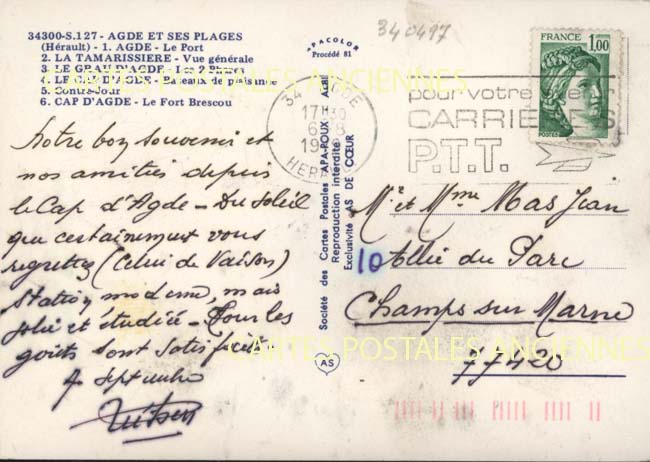 34300-S.127 - AGDE ET SES PLAGES
(Hérault) - 1. AGDE - Le Port
2. LA TAMARISSIERE - Vue générale
3. LE GRAU D'AGDE - Les 2 Phares
4. LE CAP D'AGDE - Bateaux de plaisance
5. Contre-Jour
6. CAP D'AGDE - Le Fort Brescou
Notre bon souvenir et
nos amitiés depuis
le Cap d'Agde - Du soleil
que certainement vous
regrettez (Celui de Vaison)
Station moderne, mais
jolie et étudiée - Tous les
goûts sont satisfaits
7 Septembre
APACOLOR
Procédé 81
Société des Cartes Postales APA-POUX - ALBI
Reproduction interdite
Exclusivité AS DE CŒUR
AS
340497
34 AGDE
17H30
HERAULT
pour votre
CARRIERES
P.T.T.
FRANCE
1,00
POSTES
Mr et Mme Mas Jean
10 Allée du Parc
Champs sur Marne
77420
CARTES POSTALES ANCIENNES
CARTES POSTALES ANCIENNES